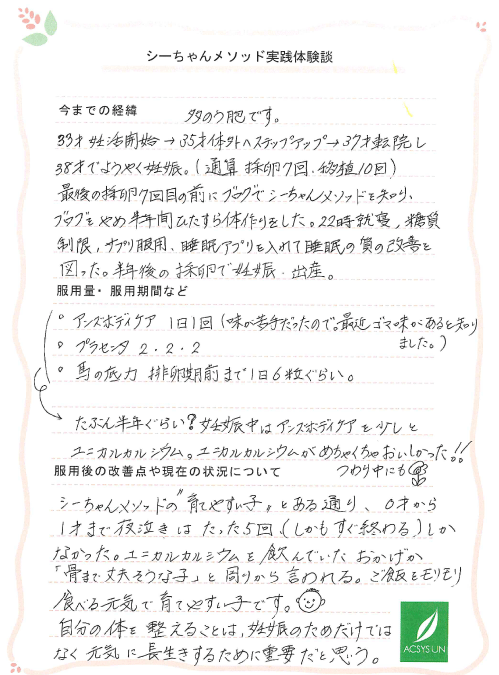 シーちゃんメソッド実践体験談
今までの経緯 多のう胞です。
33才妊活開始→35才体外へステップアップ→37才転院し
38才でようやく妊娠。(通算 採卵7回、移植10回)
最後の採卵7回目の前にブログでシーちゃんメソッドを知り、
ブログをやめ半年間ひたすら体作りをした。22時就寝、糖質
制限、サプリ服用、睡眠アプリを入れて睡眠の質の改善を
図った。半年後の採卵で妊娠・出産。
服用量・服用期間など
。アンズボディケア 1日1回(味が苦手だったので。最近ゴマ味があると知り
ました。)
。プラセンタ 2.2.2
。馬の底力 排卵期前まで1日6粒ぐらい。
たぶん半年ぐらい?妊娠中はアンズボディケアを少しと
ユニカルカルシウム。ユニカルカルシウムがめちゃくちゃおいしかった!!
服用後の改善点や現在の状況について つわり中にも
シーちゃんメソッドの"育てやすい子"とある通り、0才から
1才まで夜泣きはたった5回、(しかもすぐ終わる)しか
なかった。ユニカルカルシウムを飲んでいたおかげか
「骨まで丈夫そうな子」と周りから言われる。ご飯をモリモリ
食べる元気で育てやすい子です。
自分の体を整えることは、妊娠のためだけでは
なく元気に長生きするために重要だと思う。
ACSYSUN